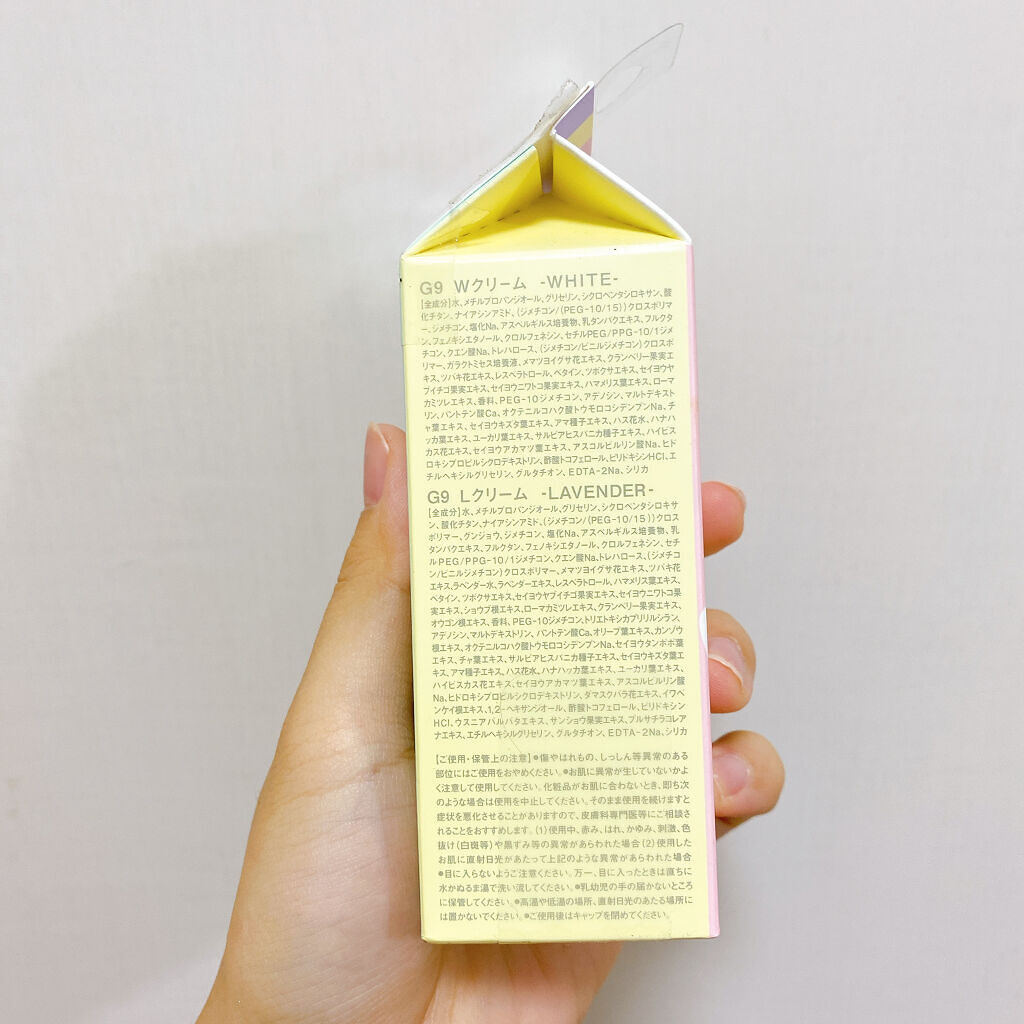 G9 Wクリーム -WHITE-
【全成分】水、メチルプロパンジオール、グリセリン、シクロペンタシロキサン、酸
化チタン、ナイアシンアミド、(ジメチコン/(PEG-10/15))クロスポリマ
ー、ジメチコン、塩化Na、アスペルギルス培養物、乳タンパクエキス、フルクタ
ン、フェノキシエタノール、クロルフェネシン、セチルPEG/PPG-10/1ジメ
チコン、クエン酸Na、トレハロース、(ジメチコン/ビニルジメチコン)クロスポ
リマー、ガラクトミセス培養液、メマツヨイグサ花エキス、クランベリー果実エ
キス、ツバキ花エキス、レスベラトロール、ベタイン、ツボクサエキス、セイヨウヤ
ブイチゴ果実エキス、セイヨウニワトコ果実エキス、ハマメリス葉エキス、ローマ
カミツレエキス、香料、PEG-10ジメチコン、アデノシン、マルトデキスト
リン、パントテン酸Ca、オクテニルコハク酸トウモロコシデンプンNa、チ
ャ葉エキス、セイヨウキズタ葉エキス、アマ種子エキス、ハス花水、ハナハ
ッカ葉エキス、ユーカリ葉エキス、サルビアヒスパニカ種子エキス、ハイビス
カス花エキス、セイヨウアカマツ葉エキス、アスコルビルリン酸Na、ヒド
ロキシプロピルシクロデキストリン、酢酸トコフェロール、ピリドキシンHCl、エ
チルヘキシルグリセリン、グルタチオン、EDTA-2Na、シリカ
G9 Lクリーム -LAVENDER-
【全成分】水、メチルプロパンジオール、グリセリン、シクロペンタシロキサ
ン、酸化チタン、ナイアシンアミド、(ジメチコン/(PEG-10/15))クロス
ポリマー、グンジョウ、ジメチコン、塩化Na、アスペルギルス培養物、乳
タンパクエキス、フルクタン、フェノキシエタノール、クロルフェネシン、セチ
ルPEG/PPG-10/1ジメチコン、クエン酸Na、トレハロース、(ジメチコ
ン/ビニルジメチコン)クロスポリマー、メマツヨイグサ花エキス、ツバキ花
エキス、ラベンダー水、ラベンダーエキス、レスベラトロール、ハマメリス葉エキス、
ベタイン、ツボクサエキス、セイヨウヤブイチゴ果実エキス、セイヨウニワトコ果
実エキス、ショウブ根エキス、ローマカミツレエキス、クランベリー果実エキス、
オウゴン根エキス、香料、PEG-10ジメチコン、トリエトキシカプリリルシラン、
アデノシン、マルトデキストリン、パントテン酸Ca、オリーブ葉エキス、カンゾウ
根エキス、オクテニルコハク酸トウモロコシデンプンNa、セイヨウタンポポ葉
エキス、チャ葉エキス、サルビアヒスパニカ種子エキス、セイヨウキズタ葉エ
キス、アマ種子エキス、ハス花水、ハナハッカ葉エキス、ユーカリ葉エキス、
ハイビスカス花エキス、セイヨウアカマツ葉エキス、アスコルビルリン酸
Na、ヒドロキシプロピルシクロデキストリン、ダマスクバラ花エキス、イワベ
ンケイ根エキス、1,2-ヘキサンジオール、酢酸トコフェロール、ピリドキシン
HCl、ウスニアバルバタエキス、サンショウ果実エキス、プルサチラコレア
ナエキス、エチルヘキシルグリセリン、グルタチオン、EDTA-2Na、シリカ
【ご使用・保管上の注意】●傷やはれもの、しっしん等異常のある
部位にはご使用をおやめください。●お肌に異常が生じていないかよ
く注意して使用してください。化粧品がお肌に合わないとき、即ち次
のような場合は使用を中止してください。そのまま使用を続けますと
症状を悪化させることがありますので、皮膚科専門医等にご相談さ
れることをおすすめします。(1)使用中、赤み、はれ、かゆみ、刺激、色
抜け(白斑等)や黒ずみ等の異常があらわれた場合(2)使用した
お肌に直射日光があたって上記のような異常があらわれた場合
●目に入らないようご注意ください。万一、目に入ったときは直ちに
水かぬるま湯で洗い流してください。●乳幼児の手の届かないところ
に保管してください。●高温や低温の場所、直射日光のあたる場所に
は置かないでください。●ご使用後はキャップを閉めてください。